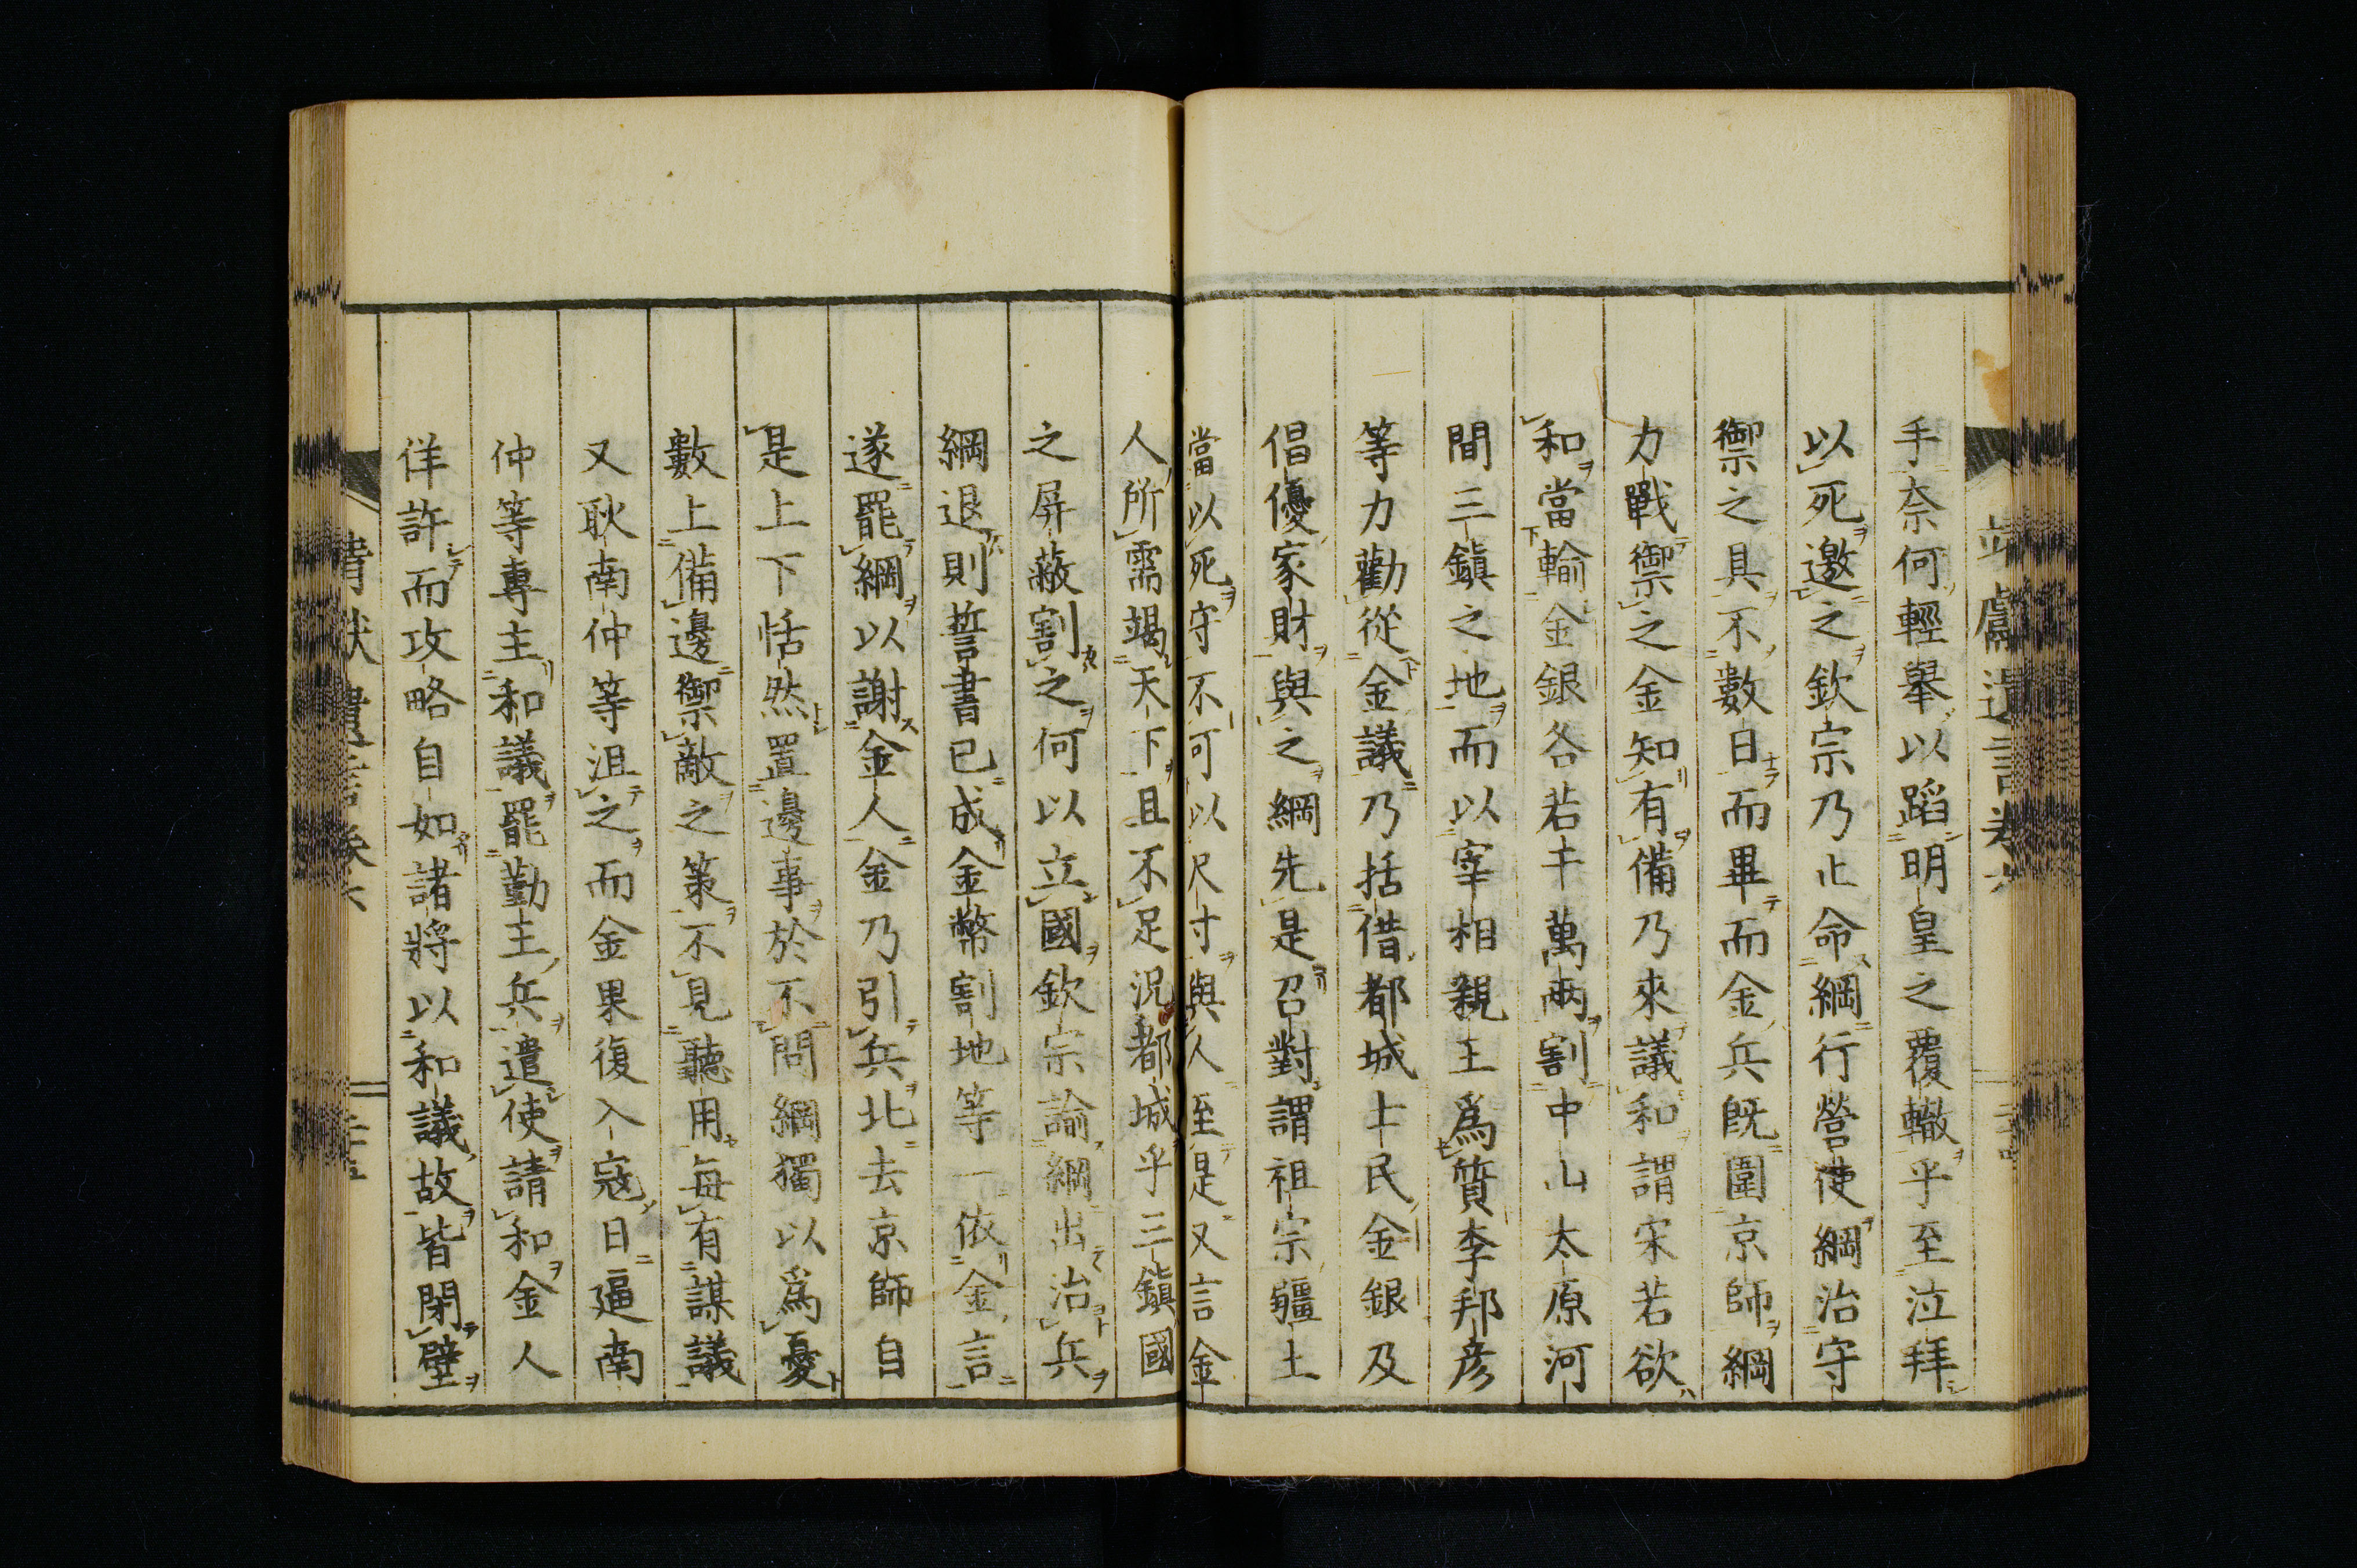 手奈何輕擧以蹈明皇之覆轍乎至泣拜
以死邀之欽宗乃止命綱行營使綱治守
禦之具不數日而畢而金兵旣圍京師綱
力戰禦之金知有備乃來議和謂宋若欲
和當輸金銀各若干萬兩割中山太原河
間三鎭之地而以宰相親王爲質李邦彦
等力勸從金議乃括借都城士民金銀及
倡優家財與之綱先是召對謂祖宗疆土
當以死守不可以尺寸與人至是又言金
人所需竭天下且不足況都城乎三鎭國
之屏蔽割之何以立國欽宗諭綱出治兵
綱退則誓書已成金幣割地等一依金言
遂罷綱以謝金人金乃引兵北去京師自
是上下恬然置邊事於不問綱獨以爲憂
數上備邊禦敵之策不見聽用每有謀議
又耿南仲等沮之而金果復入寇日逼南
仲等專主和議罷勤王兵遣使請和金人
佯許而攻略自如諸將以和議故皆閉壁